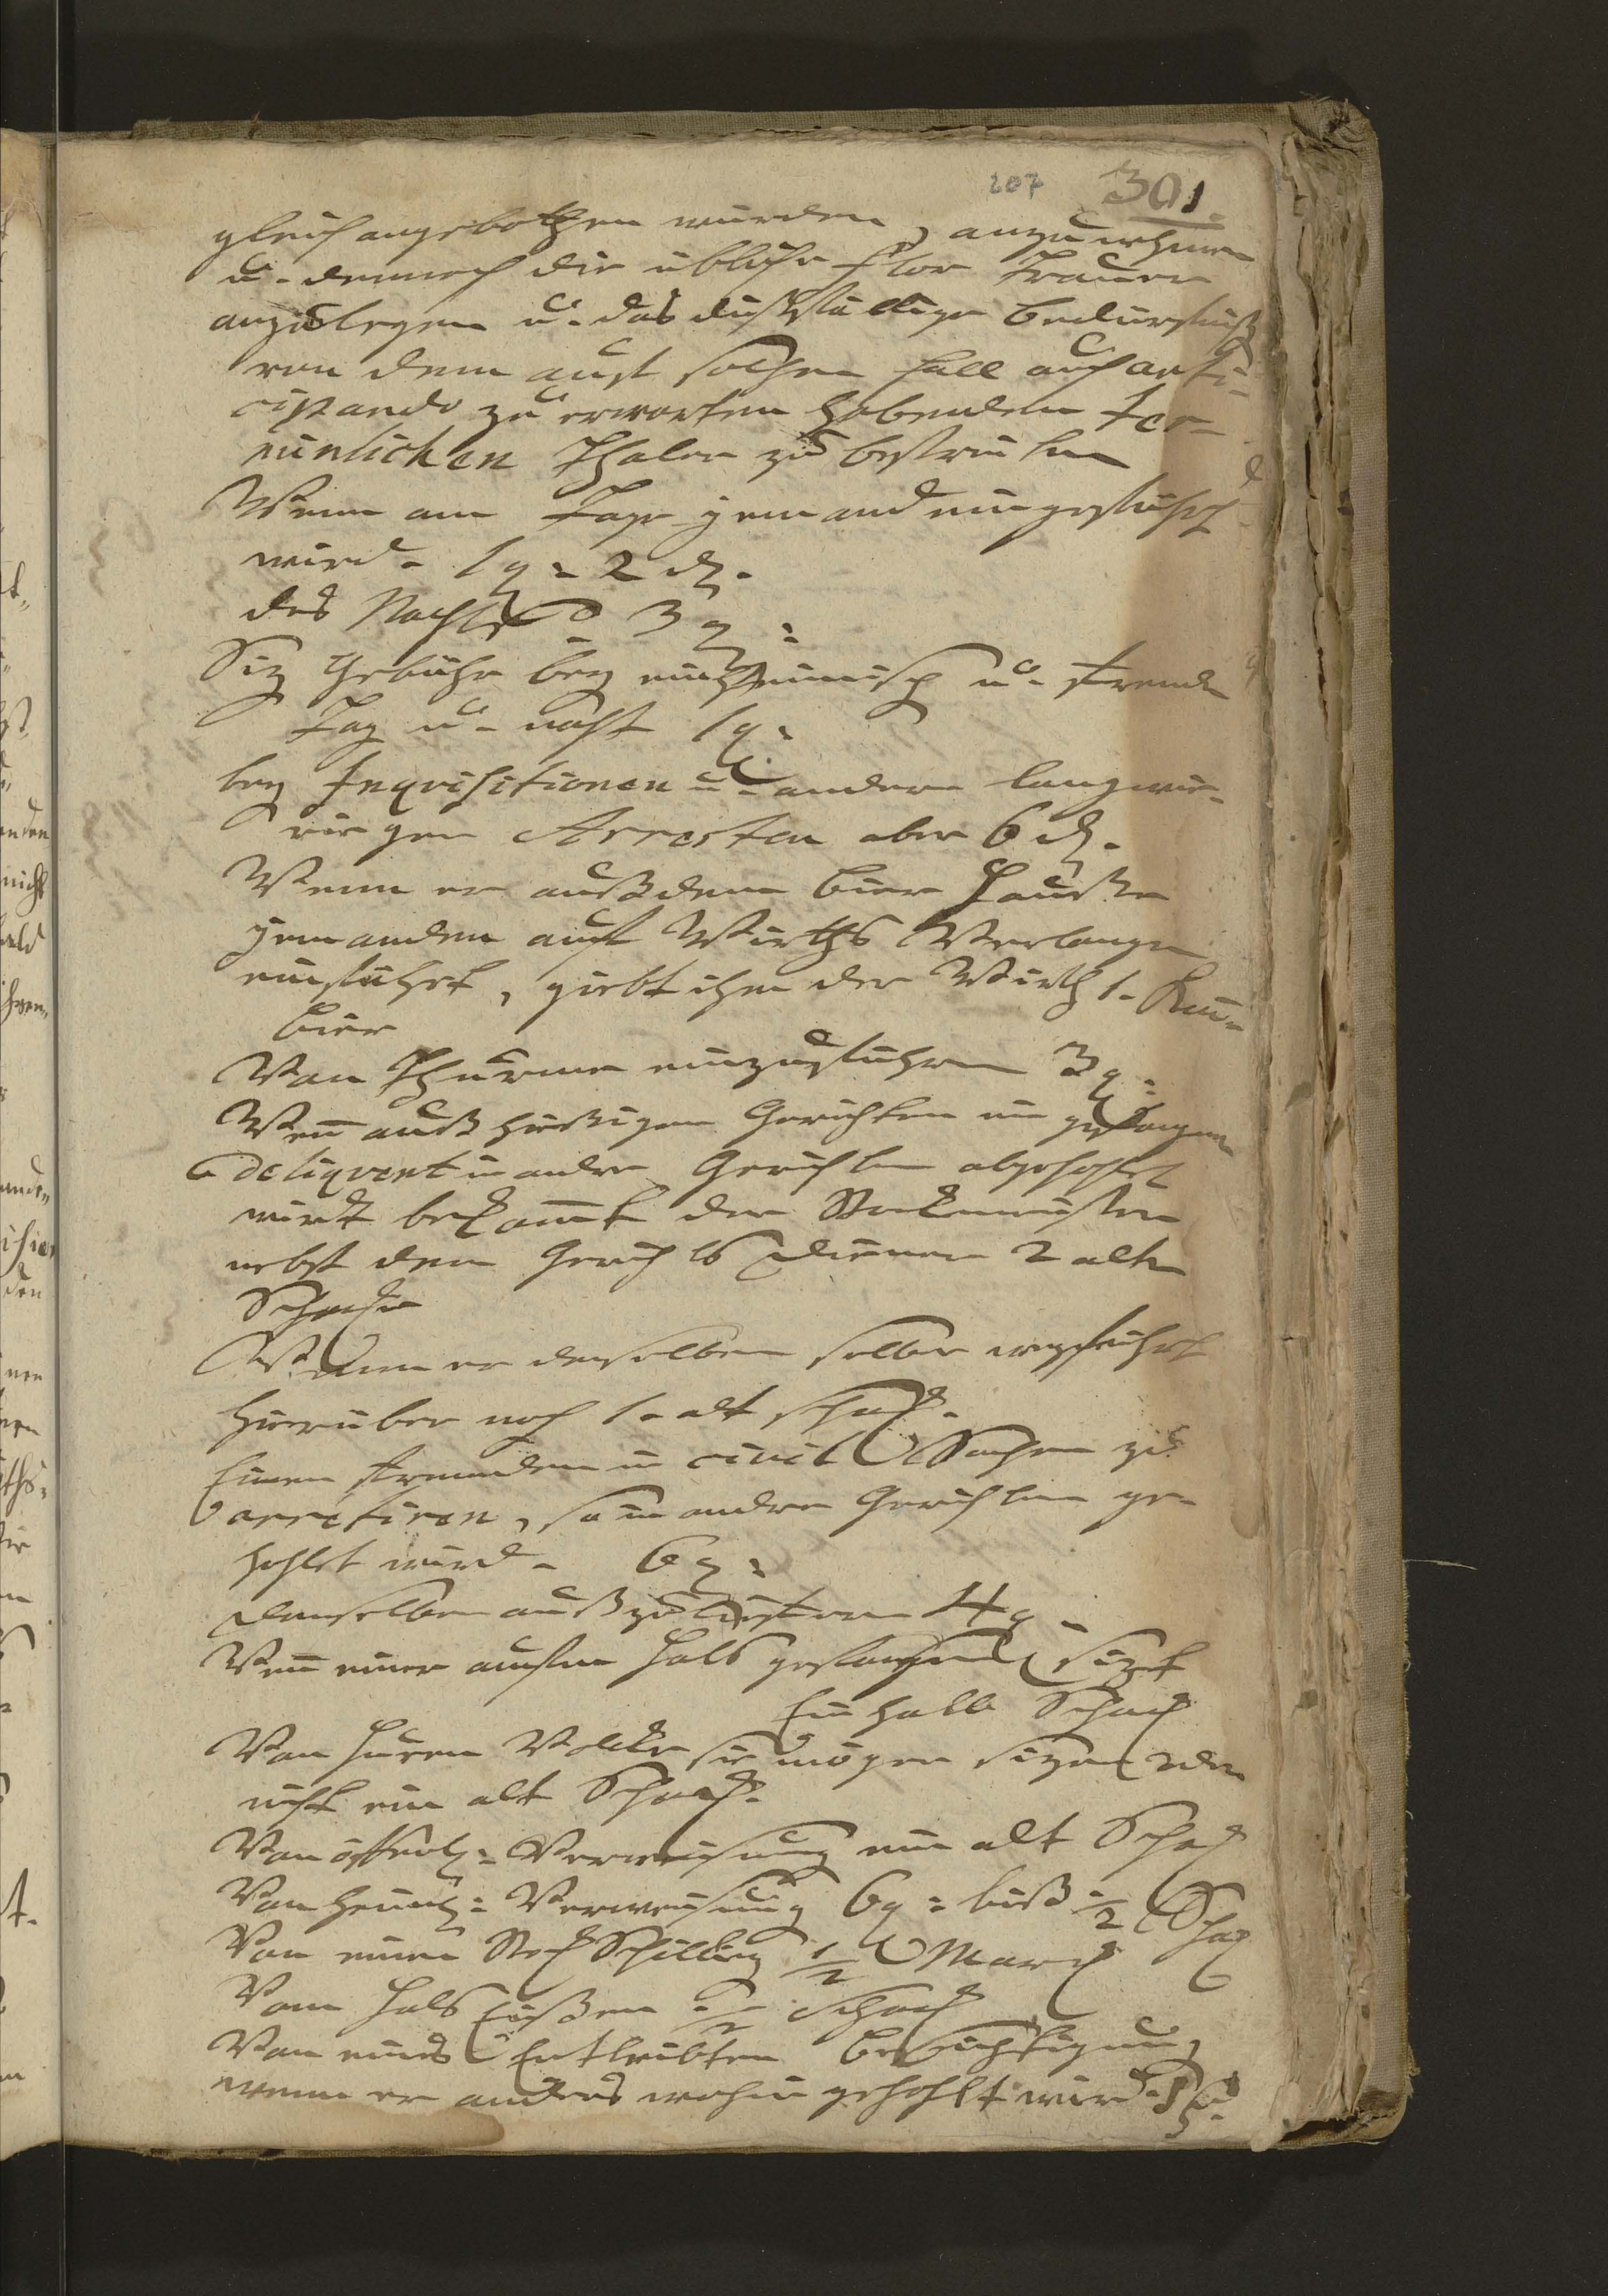 207 301.
gleich angebothen würden, anzunehmen
u. demnach die übliche Flor Trauer
anzulegen u. das dießfällige Bedürfniß
von dem auf solchen Fall auch anti-
cipando zu erwarten habenden Ter-
minlichen Thaler zu bestreiten
Wenn am Tage jemand eingeführt
wird. 1 g. 2 d.
des Nachts 3 g.
Siz Gebühr bey einheimisch u. Fremde
Tag u. Nacht 1 g.
bey Inqvisitionen u. andern langwie-
rigen Arresten aber 6 d.
Wenn er auß dem Bier Hauße
jemanden auf Wirths Verlangen
einführt, giebt ihm der Wirth 1. Kan-
Bier
Von Thurme einzuführen 3 g.
Wen auß hießigen Gerichten ein gefangner
Deliqvent in andre Gerichten abgehohlt
wird bekomt der Stockmeister
nebst dem Gerichts Diener 2 alte
Schocke
Wenn er denselben selber wegführt
hierüber noch 1. alt Schock.
Einen Fremden in civil Sachen zu
arretiren, so in andre Gerichten ge-
hohlet wird. 6 g.
denselben außzuliefern 4 g.
Wen einer aufm Hals gefangen sizet
Ein halb Schock
Von Huren Volcke sie mögen sizen oder
nicht ein alt Schock.
Von öffentl: Verweisung ein alt Schock
Von heiml: Verweisung 6 g: biß 1/2 Schock
Von einen Stock Schilling 1/2 Marck
Vom Hals Eißen 1/2 Schock
Von eines Entleibten Besichtigung
wenn er anders wohin gehohlt wird.